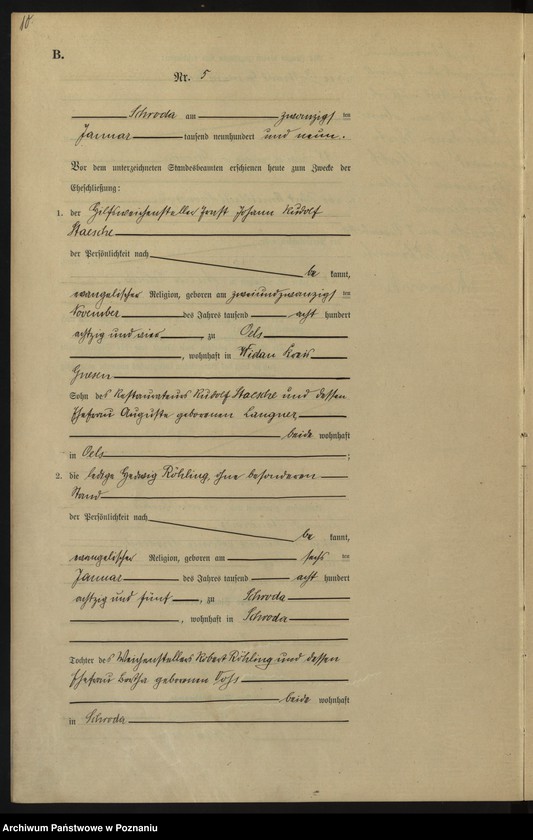 10.
B.
Nr. 5
Schroda am zwanzigsten
Januar tausend neunhundert und neun.
Vor dem unterzeichneten Standesbeamten erschienen heute zum Zwecke der
Eheschließung:
1. der Hilfsweichensteller Ernst Johann Rudolf
Staesche
der Persönlichkeit nach
be kannt,
evangelischer Religion, geboren am zweiundzwanzigsten
November des Jahres tausend acht hundert
achtzig und vier, zu Oels
, wohnhaft in Widau Kreis
Gnesen
Sohn des Restaurateurs Rudolf Staesche und dessen
Ehefrau Auguste geborenen Langner
beide wohnhaft
in Oels ;
2. die ledige Hedwig Röhling, ohne besonderen
Stand
der Persönlichkeit nach
be kannt,
evangelischer Religion, geboren am sechsten
Januar des Jahres tausend acht hundert
achtzig und fünf, zu Schroda
, wohnhaft in Schroda
Tochter des Weichenstellers Robert Röhling und dessen
Ehefrau geborenen
beide wohnhaft
in Schroda
Archiwum Państwowe w Poznaniu